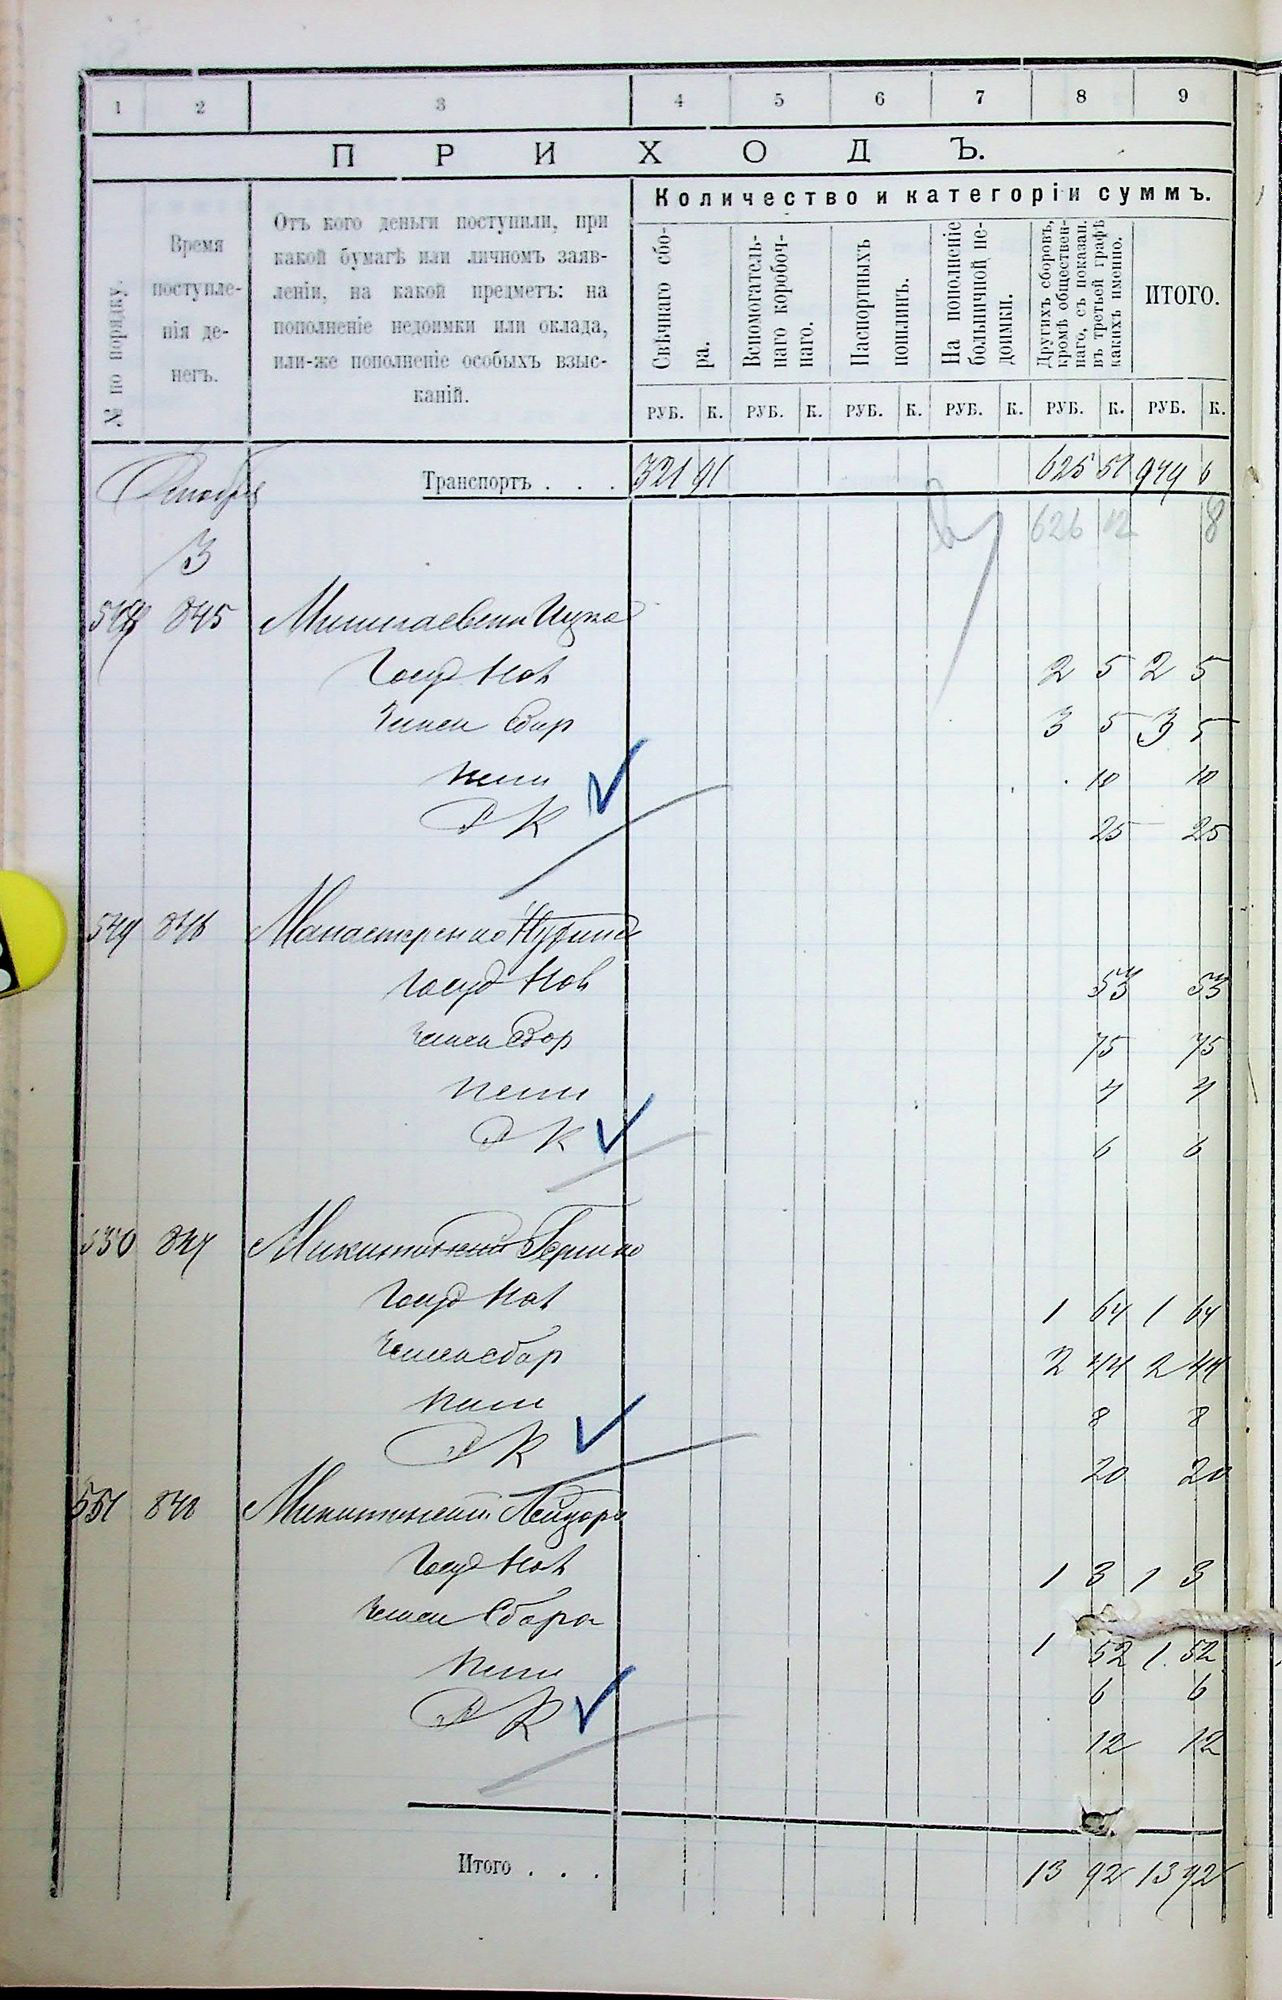 1 2 3 4 5 6 7 8 9
ПРИХОДЪ.
№ по порядку.
Время поступле-
нія де-
негъ.
Отъ кого деньги поступили, при
какой бумагѣ или личномъ заяв-
леніи, на какой предметъ: на
пополненіе недоимки или оклада,
или-же пополненіе особыхъ взыс-
каній.
Количество и категоріи суммъ.
Свѣчнаго сбо-
ра.
Вспомогатель-
наго коробоч-
наго.
Паспортныхъ
пошлинъ.
На пополненіе
больничной не-
доимки.
Другихъ сборовъ,
кромѣ обществен-
наго, съ показан.
въ третьей графѣ
какихъ именно.
ИТОГО.
РУБ. К. РУБ. К. РУБ. К. РУБ. К. РУБ. К. РУБ. К.
Транспортъ . . . 321 91 625 51 6
626 12 8
3
548 845
Госуд Нал 2 5 2 5
Земск Сбор 3 5 3 5
Пени 10 10
Р К 25 25
549 846 Манастерско
Госуд Нал 53 53
Земск Сбор 75 75
Пени 4 4
Р К 6 6
550 847 Гершко
Госуд Нал 1 64 1 64
Земск сбор 2 44 2 44
Пени 8 8
Р К 20 20
551 848 Микитинский
Госуд Нал 1 3 1 3
Земск Сбора 1 52 1 52
Пени 6 6
Р К 12 12
Итого . . . 13 92 13 92